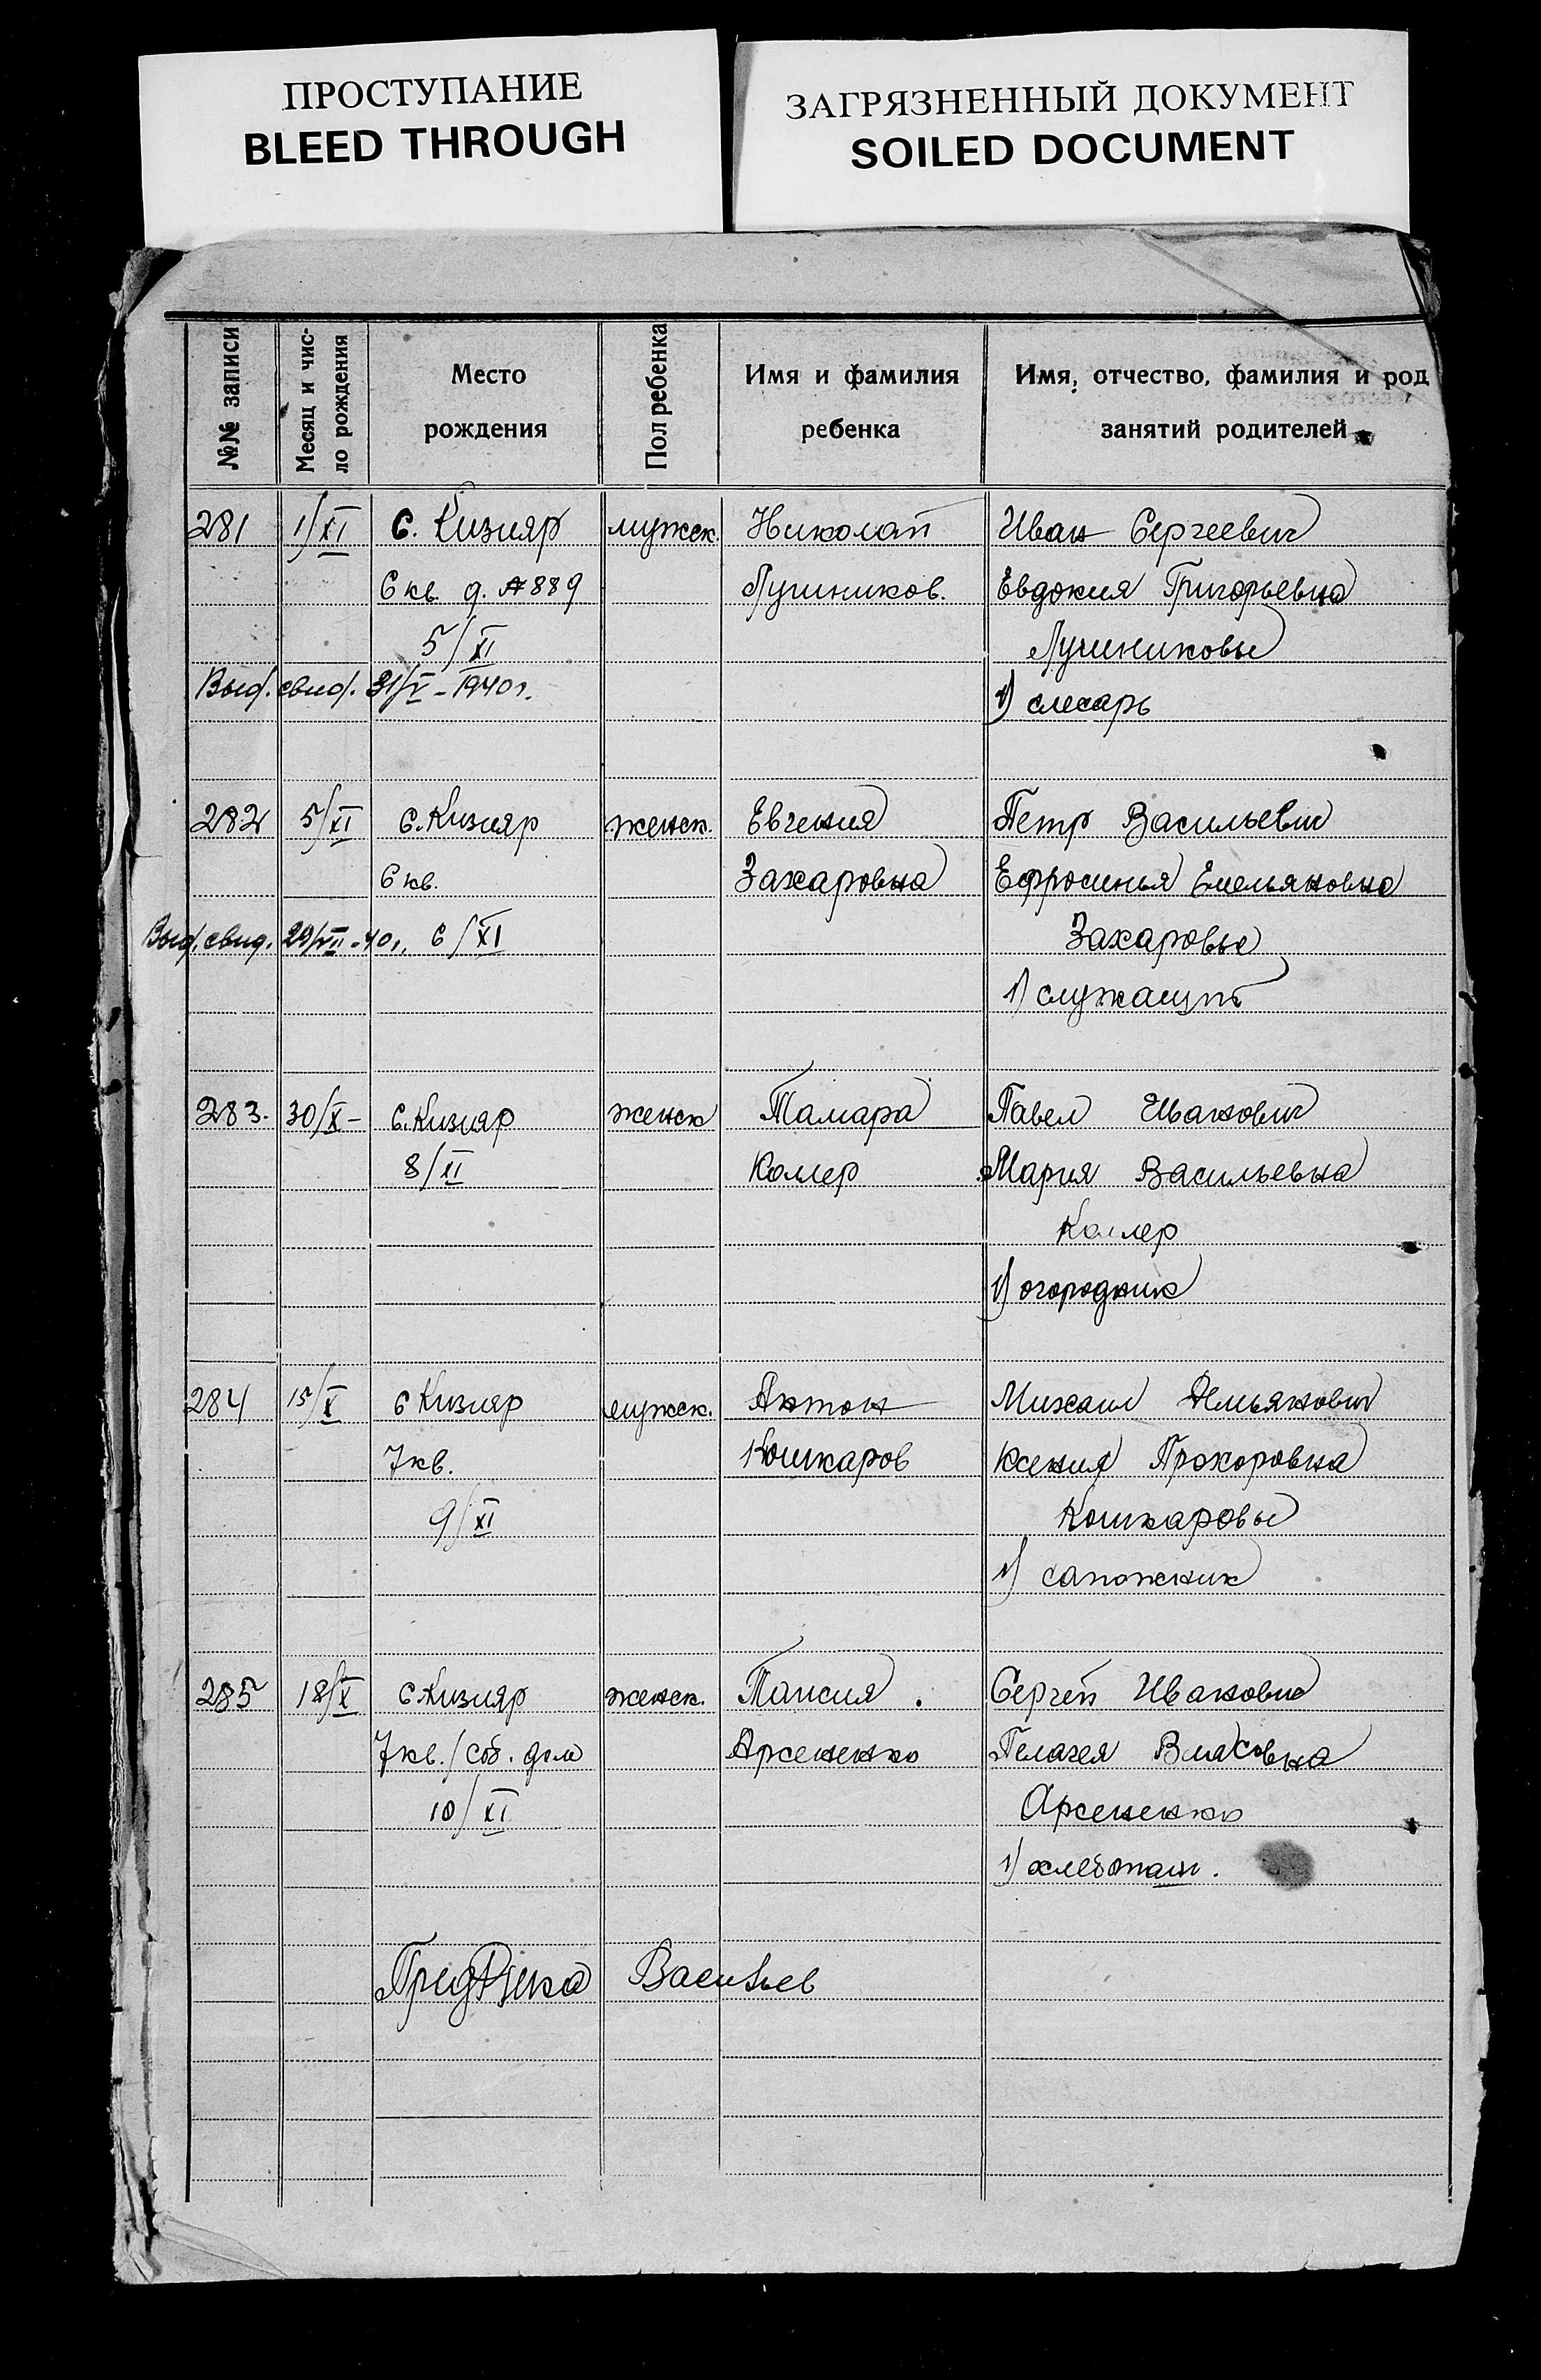 ПРОСТУПАНИЕ
BLEED THROUGH
ЗАГРЯЗНЕННЫЙ ДОКУМЕНТ
SOILED DOCUMENT
№№ записи
Месяц и чис-
ло рождения
Место
рождения
Пол ребенка
Имя и фамилия
ребенка
Имя, отчество, фамилия и род
занятий родителей
281 1/XI с. Кизияр мужск. Николай Иван Сергеевич
6 кв. д. №889 Лучников. Евдокия Григорьевна
5/XI Лучниковы
Выд. свид. 31/V - 1940 г. 1) слесарь
282 5/XI с. Кизияр женск. Евгения Петр Васильевич
6 кв. Захаровна Ефросинья Емельяновна
Выд. свид. 29/VII - 40 г. 6/XI Захаровы
1) служащий
283. 30/X - с. Кизияр женск Тамара Павел Иванович
8/XI Мария Васильевна
1) огородник
284 15/X с Кизияр мужск. Антон Михаил
7 кв. Кошкаров Ксения Прохоровна
9/XI Кошкаровы
1) сапожник
285 18/X с. Кизияр женск. Таисия. Сергей Иванович
7 кв. / соб. дом Арсененко Пелагея Власовна
10/XI Арсененко
1) хлебопаш.
Васильев